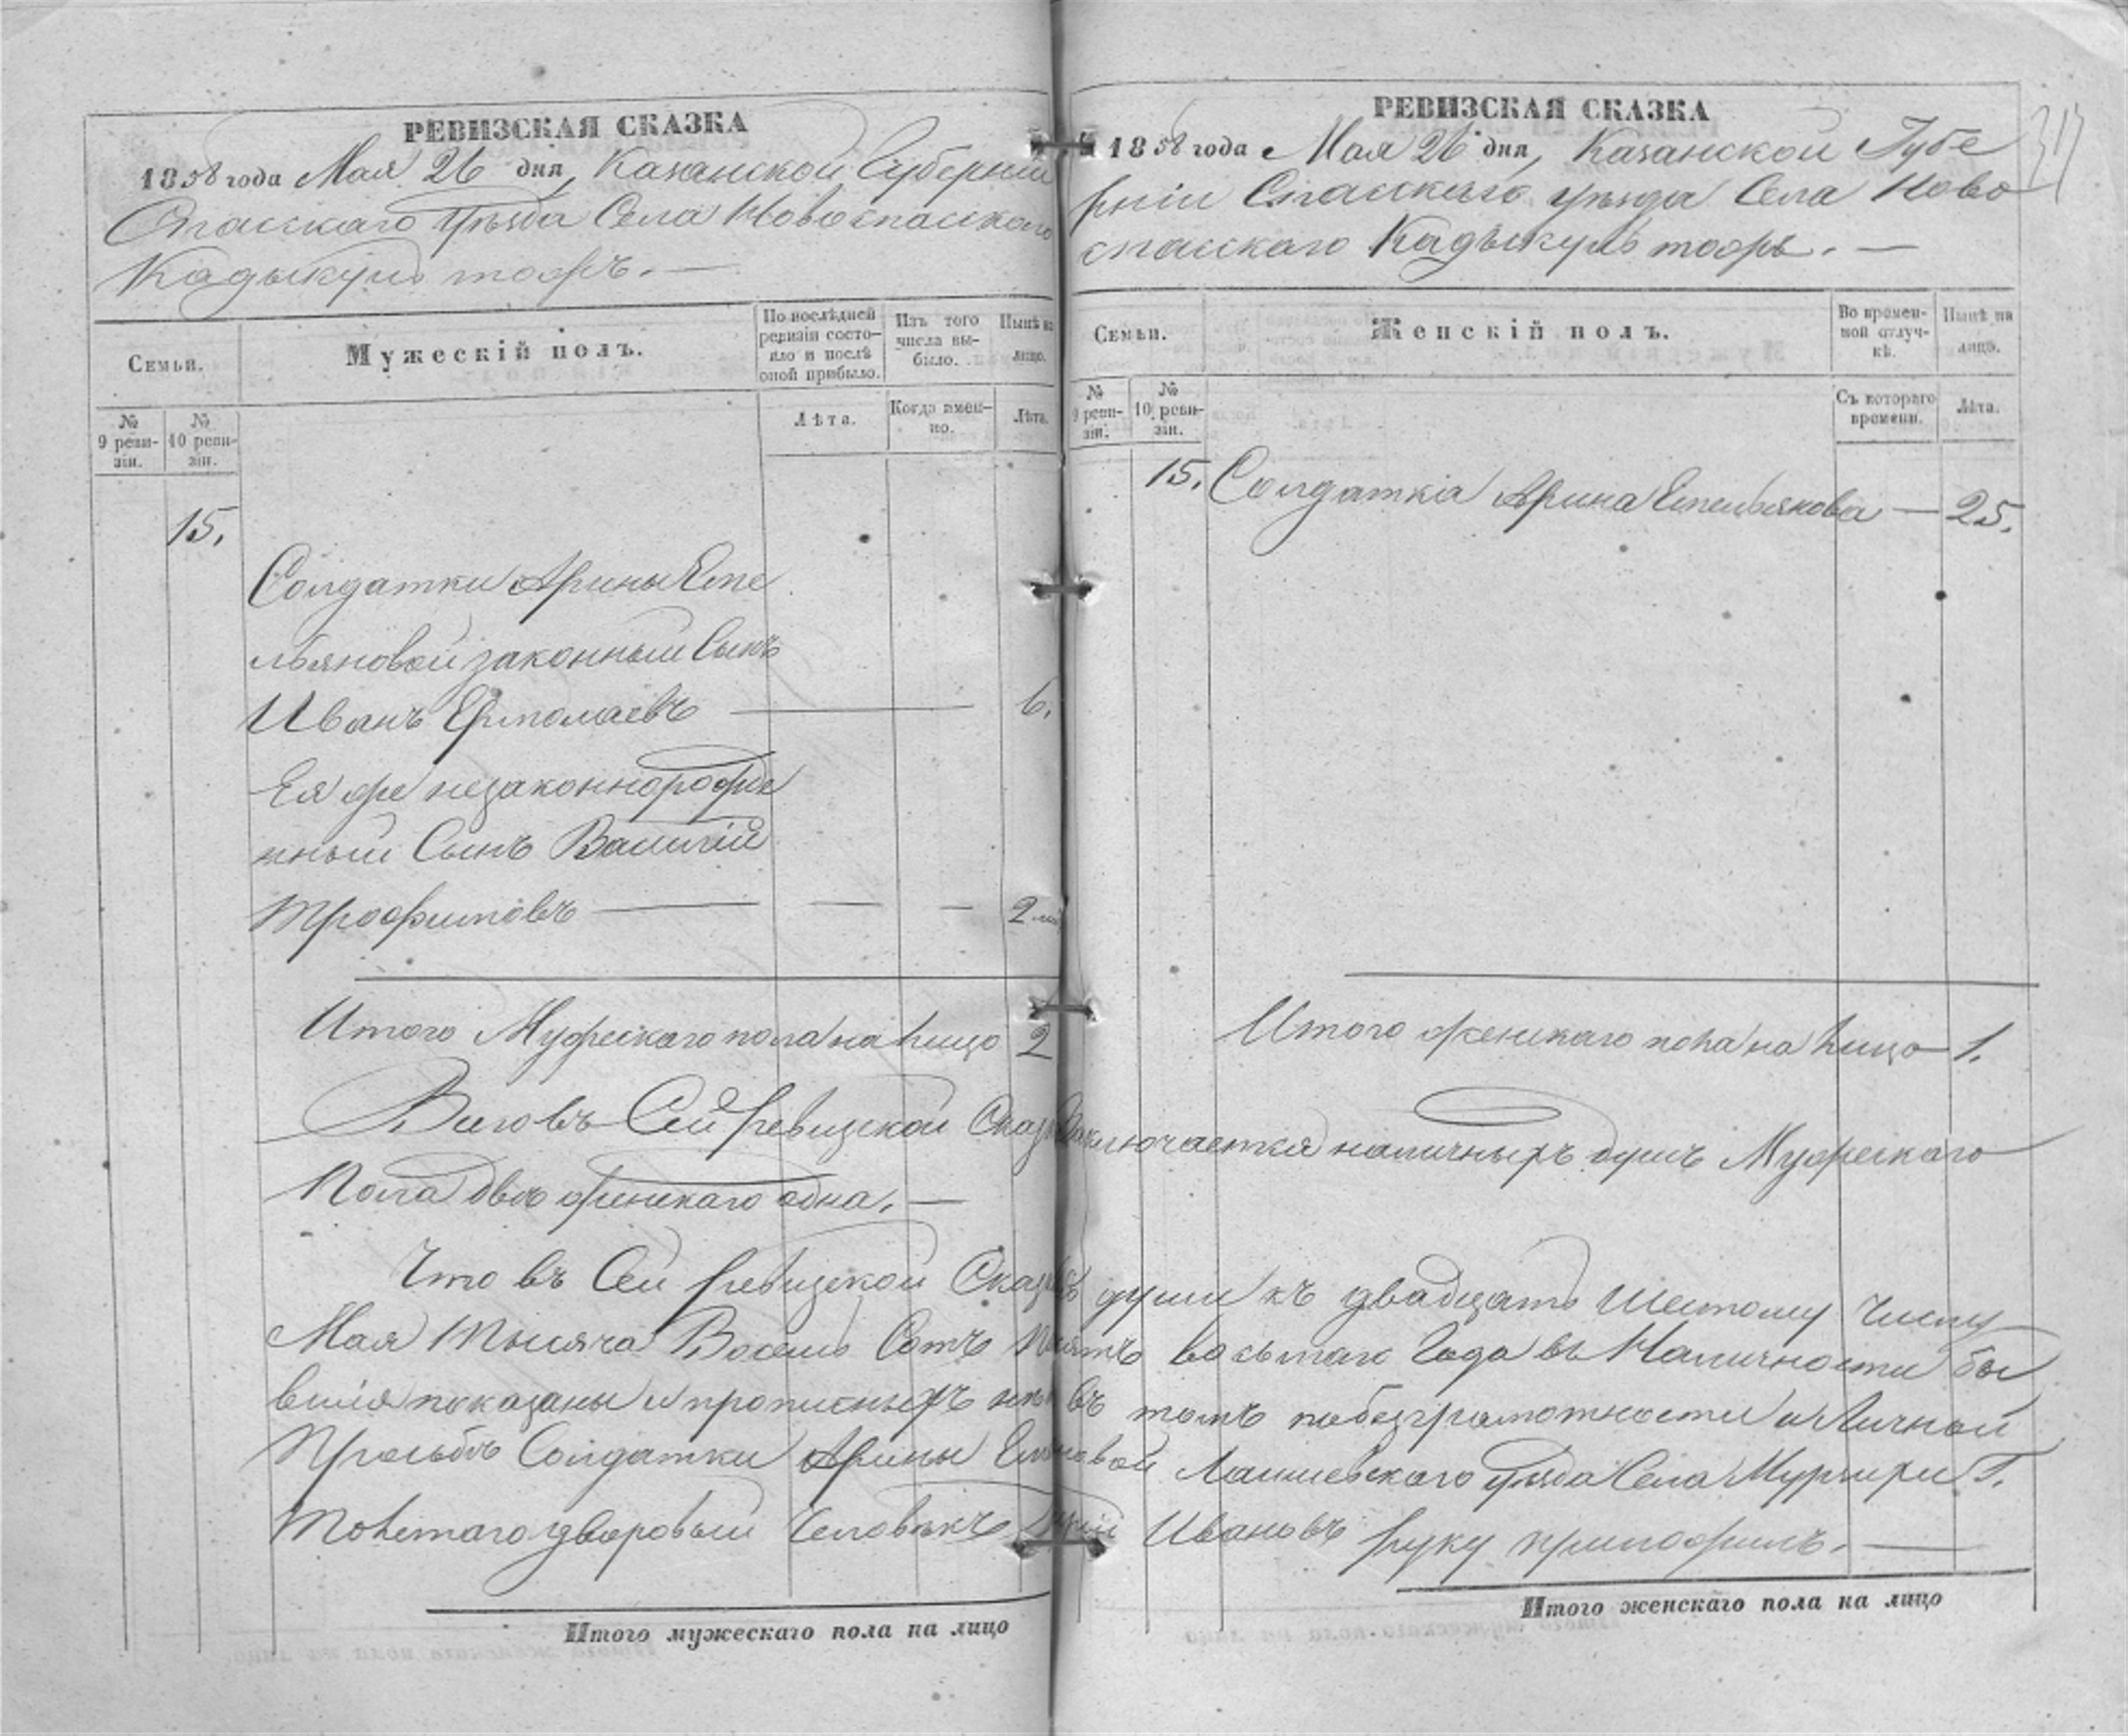 РЕВИЗСКАЯ СКАЗКА
1858 года Мая 26 дня, Казанской Губерніи
Спасскаго уѣзда Села Новоспаскаго
Кадыкуль тожъ. —
Семьи.
Мужескій полъ.
По послѣдней ревизіи состояло и послѣ оной прибыло.
Изъ того числа выбыло.
Нынѣ на лицо.
№ 9 ревизіи.
№ 10 ревизіи.
Лѣта.
Когда именно.
Лѣта.
15.
Солдатки Арины Еме
льяновой законный Сынъ
Иванъ Ермолаевъ — 6.
Ея же незаконнорожде
нный Сынъ Василій
Трофимовъ — — — 2
Итого Мужескаго пола на лицо 2
РЕВИЗСКАЯ СКАЗКА
1858 года Мая 26 дня, Казанской Губе
рніи Спасскаго уѣзда Села Ново
спаскаго Кадыкуль тожъ. —
Семьи.
Женскій полъ.
Во временной отлучкѣ.
Нынѣ на лицо.
№ 9 ревизіи.
№ 10 ревизіи.
Съ котораго времени.
Лѣта.
15. Солдатка Арина Емельянова — 25.
Итого женскаго пола на лицо 1.
Всего въ Сей ревизской Сказкѣ заключается наличныхъ душъ Мужескаго
Пола двѣ женскаго одна. —
Что въ Сей ревизской Сказкѣ души къ двадцать Шестому Числу
Мая Тысяча Восемь Сотъ восьмаго Года въ Наличности бы
вшія показаны и прописныхъ нѣтъ въ томъ по безграмотности и Личной
Просьбѣ Солдатки Арины Лаишевскаго уѣзда Села Мурзихи Г.
Толстаго дворовый Человѣкъ Ивановъ руку приложилъ. —
Итого мужескаго пола на лицо
Итого женскаго пола на лицо